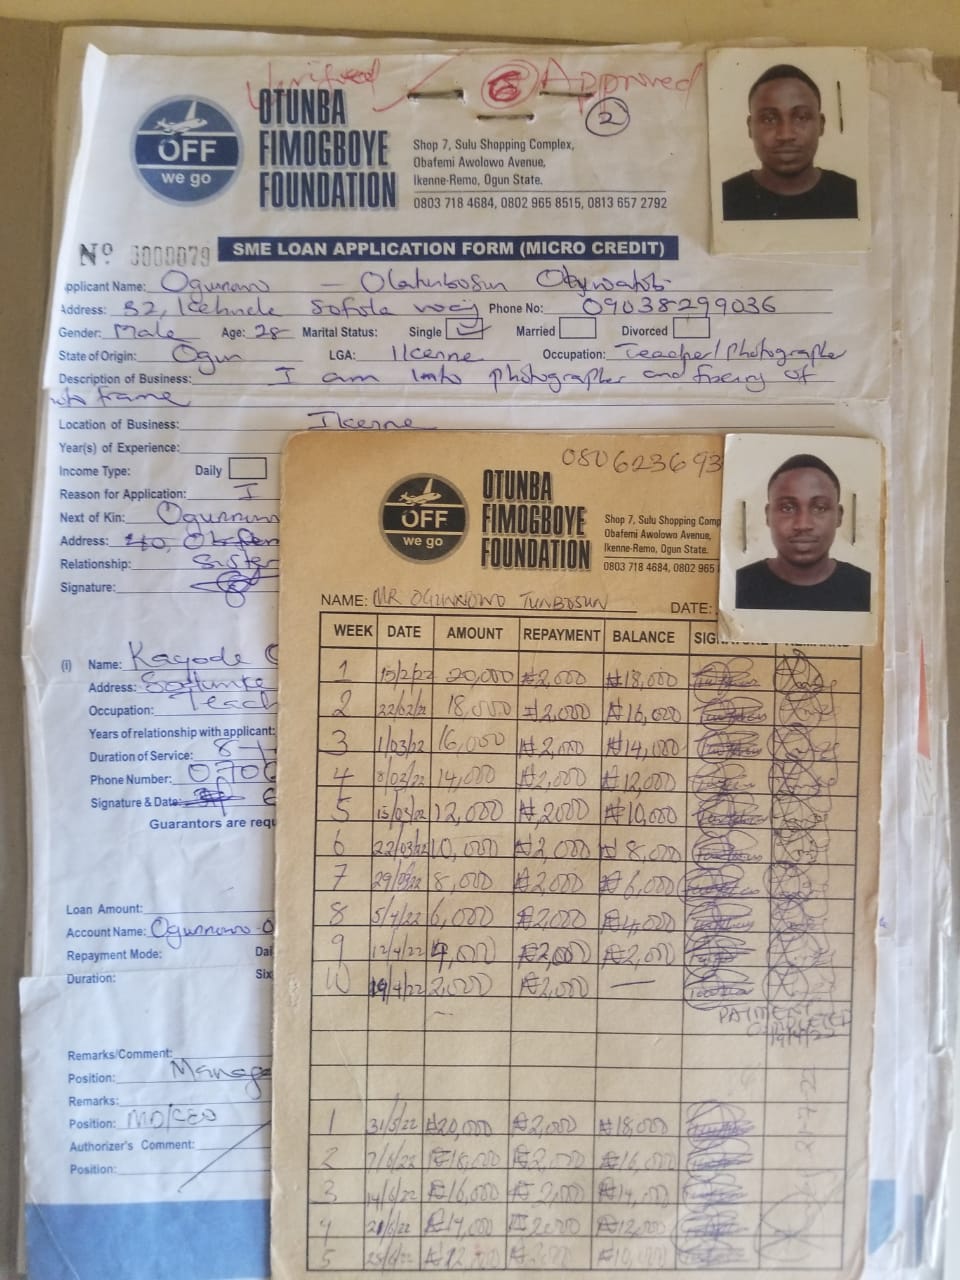 Verified Approved
2
OFF
we go
OTUNBA
FIMOGBOYE
FOUNDATION
Shop 7, Sulu Shopping Complex,
Obafemi Awolowo Avenue,
Ikenne-Remo, Ogun State.
0803 718 4684, 0802 965 8515, 0813 657 2792
Nº 0000079 SME LOAN APPLICATION FORM (MICRO CREDIT)
Applicant Name: Ogunnowo - Olatunbosun
Address: 32, Kehinde Sofola way Phone No: 09038299036
Gender: Male Age: 28 Marital Status: Single Married Divorced
State of Origin: Ogun LGA: Ikenne Occupation: Teacher/photographer
Description of Business: I am into photographer and of
frame
Location of Business: Ikenne
Year(s) of Experience:
Income Type: Daily
Reason for Application: I
Next of Kin: Ogunnowo
Address: 40,
Relationship: Sister
Signature:
(i) Name: Kayode
Address:
Occupation: Teach
Years of relationship with applicant:
Duration of Service: 8
Phone Number: 0706
Signature & Date:
Guarantors are requ
Loan Amount:
Account Name: Ogunnowo O
Repayment Mode: Dai
Duration: Six
Remarks/Comment:
Position: Manage
Remarks:
Position: MD/CEO
Authorizer's Comment:
Position:
080623693
OFF
we go
OTUNBA
FIMOGBOYE
FOUNDATION
Shop 7, Sulu Shopping Comp
Obafemi Awolowo Avenue,
Ikenne-Remo, Ogun State.
0803 718 4684, 0802 965
NAME: MR OGUNNOWO TUNBOSUN DATE:
WEEK DATE AMOUNT REPAYMENT BALANCE
1 15/2/22 20,000 ₦2,000 ₦18,000
2 22/02/22 18,000 ₦2,000 ₦16,000
3 1/03/22 16,000 ₦2,000 ₦14,000
4 8/03/22 14,000 ₦2,000 ₦12,000
5 15/03/22 12,000 ₦2,000 ₦10,000
6 22/03/22 10,000 ₦2,000 ₦8,000
7 29/03/22 8,000 ₦2,000 ₦6,000
8 5/4/22 6,000 ₦2,000 ₦4,000
9 12/4/22 4,000 ₦2,000 ₦2,000
10 19/4/22 2,000 ₦2,000 —
PAYMENT
COMPLETED
19/4/22
1 31/5/22 ₦20,000 ₦2,000 ₦18,000
2 7/6/22 ₦18,000 ₦2,000 ₦16,000
3 14/6/22 ₦16,000 ₦2,000 ₦14,000
4 21/6/22 ₦14,000 ₦2,000 ₦12,000
5 28/6/22 ₦12,000 ₦2,000 ₦10,000